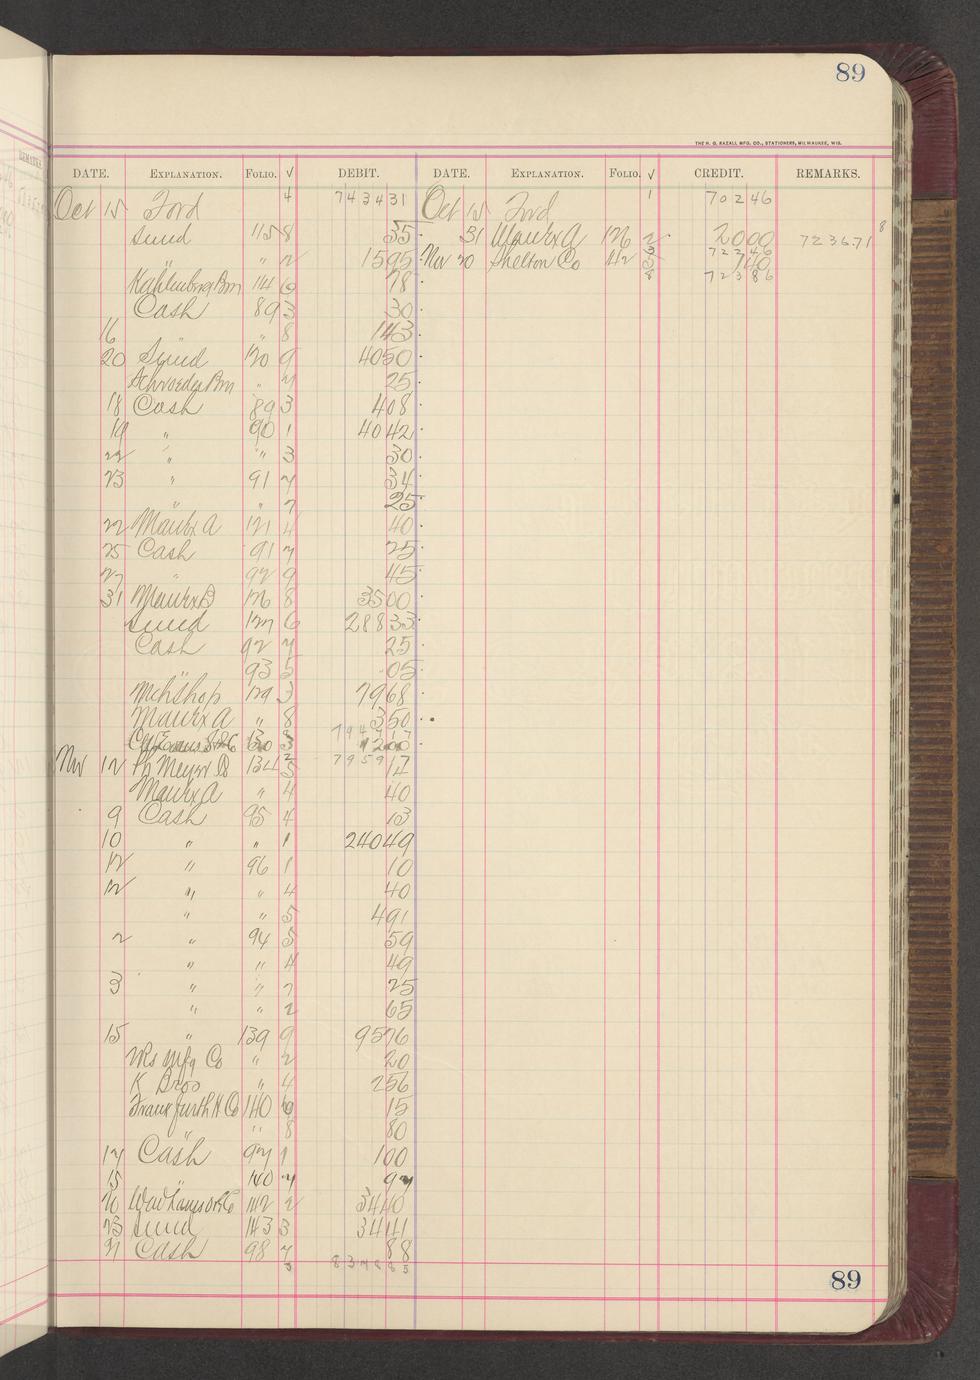 89
THE H. G. RAZALL MFG. CO., STATIONERS, MILWAUKEE, WIS.
DATE. EXPLANATION. FOLIO. √ DEBIT. DATE. EXPLANATION. FOLIO. √ CREDIT. REMARKS.
Oct 15 Ford 4 743431 Oct 15 Ford 1 70246
Sund 115 8 35 31 Maurx A 126 2 2000 723671 8
3 72246
" 2 1595 Nov 20 Shelton Co 142 140
8 72386
114 6 78
Cash 89 3 30
16 " 8 143
20 Sund 120 9 4050
Schroeder Bros " 25
18 Cash 89 3 408
19 " 90 1 4042
22 " " 3 30
23 " 91 7 34
" " 7 25
22 Maurx A 121 4 40
25 Cash 91 7 25
27 " 92 9 45
31 Maurx B 126 8 3500
Sund 127 6 28833
Cash 92 7 25
93 5 05
Mch Shop 129 3 7968
Maurx A " 8 350
130 3 1200
Nov 12 Ph Meyer 134 5 7959 17
Maurx A " 4 40
9 Cash 95 4 13
10 " " 1 24049
12 " 96 1 10
12 " " 4 40
" " 5 491
2 " 94 5 59
" " 4 49
3 " " 7 25
" " 2 65
15 " 139 9 9576
Wis Mfg Co " 2 20
K Bros " 4 256
Frankfurth H Co 140 15
" " 8 80
17 Cash 97 1 100
15 140 7 97
20 142 2 3440
23 Sund 143 3 3441
Cash 98 7 88
3 837885
89